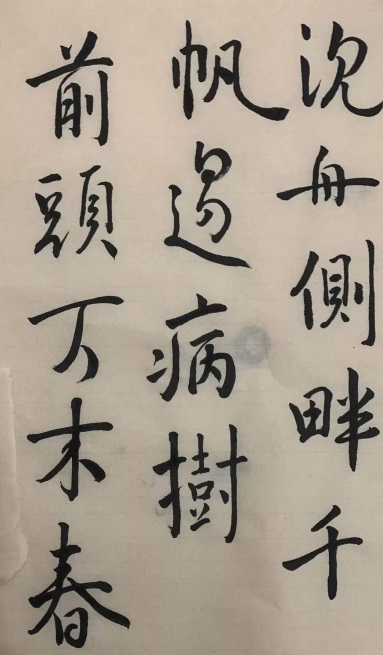 沉舟側畔千
帆過病樹
前頭万木春